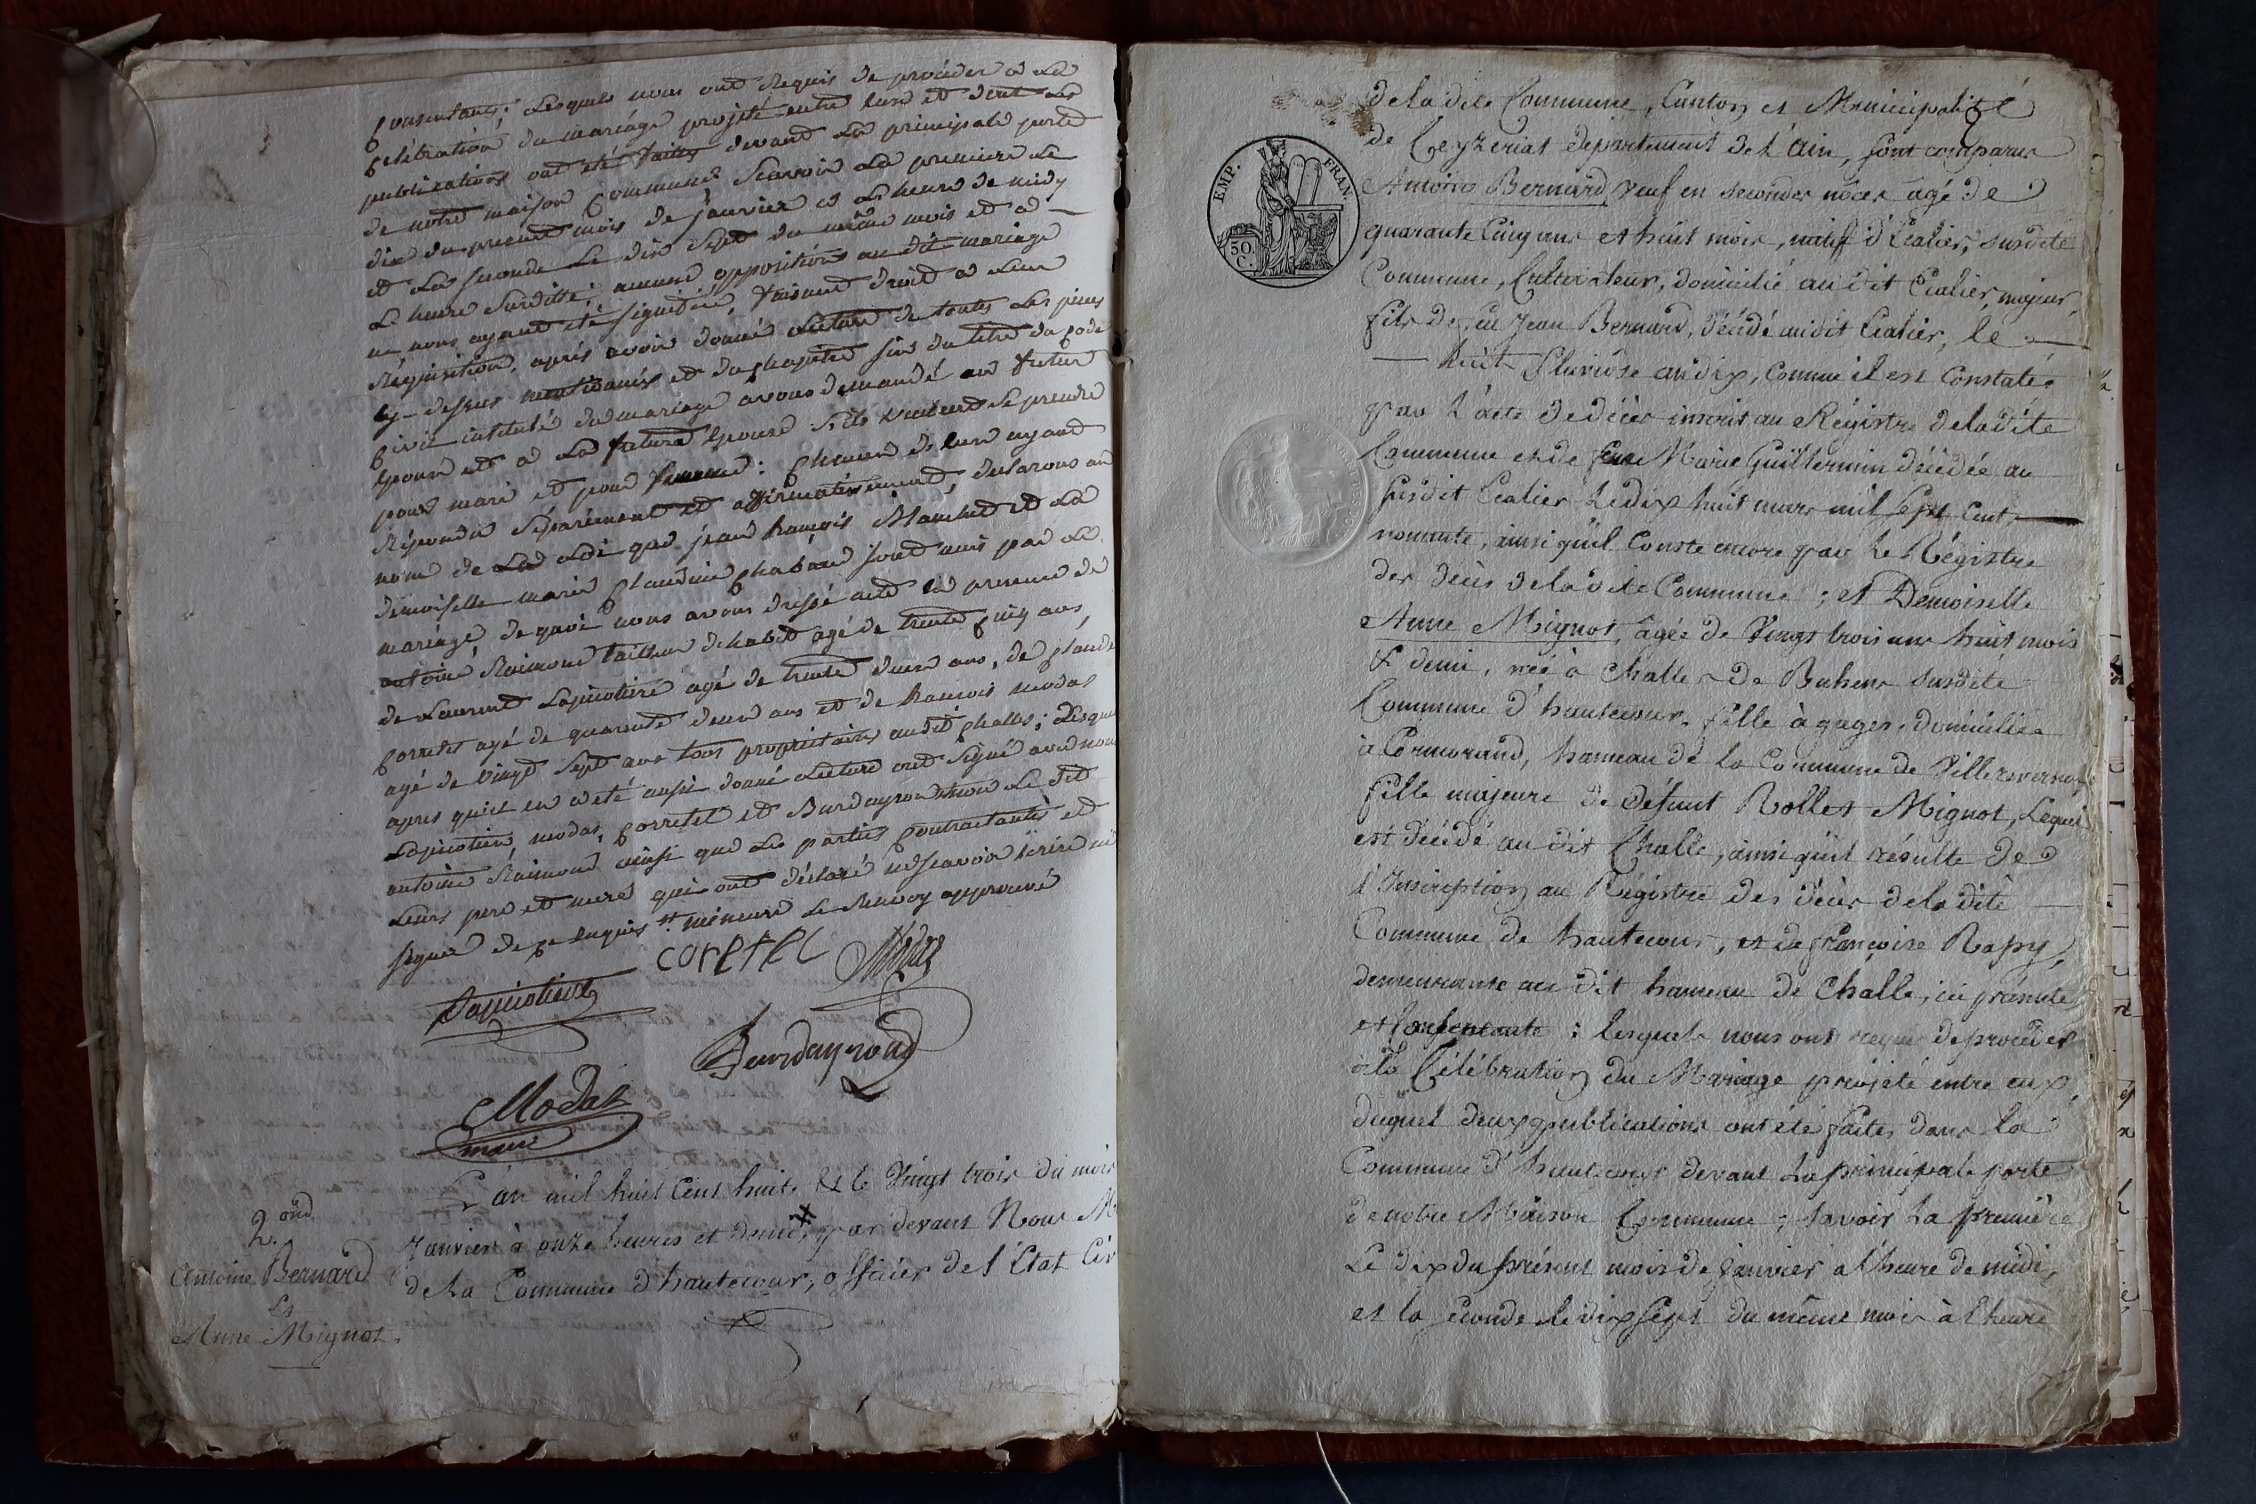 consentants; Lesquels nous ont Requis de proceder a La
celébration du mariage projeté entre Eux et dont les
publications ont été faites devant La principale porte
de notre maison Commune Scavoir La premiere Le
dix du present mois de janvier a L'heure de midy
et La seconde Le dix Sept du même mois et a
L'heure Susditte; aucune opposition au dit mariage
ne nous ayant eté signifiée, faisant droit a Leur
Réquisition, après avoir donné Lecture de toutes Les pieces
cy-dessus mentionnés et du chapitre six du titre du code
civil intitulé du mariage avons demandé au futur
epoux et a La future epouse s'ils veulent se prendre
pour mari et pour femme: chacun d'eux ayant
Répondu Séparément et affirmativement, declarons au
nom de La Loi que jean françois Blanchet et La
demoiselle marie claudine chabaud sont unis par Le
mariage, de quoi nous avons dressé acte en presence de
antoine Raimond tailleur d'habit agé de trente cinq ans,
de Laurent Lapicotiere agé de trente deux ans, de claude
corretel agé de quarante deux ans et de francois modas
agé de vingt Sept ans tous propriétaires audit challes; Lesquels
apres qu'il en a eté aussi donné Lecture ont Signé avec nous
Lapicotiere, modas, corretel et Burdayron non Le dit
antoine Raimond ainsi que Les parties contractantes et
Leurs pere et mere qui ont déclaré ne scavoir ecrire ni
signer de ce enquis
Le Renvoy approuvé
coretel Modas
Lapicotiere
Bourdayrond
Modas
maire
2. ond
Antoine Bernard
Et
Anne Mignot.
L'an mil huit Cent huit, & le Vingt trois du mois
Janvier à onze heures et demie, par devant Nous M
de la Commune d'hautecour, officier de l'État Civ
de la dite Commune, Canton et Municipalité
de Ceyzeriat département de L'ain, sont comparus
Antoine Bernard, veuf en secondes nôces âgé de
quarante Cinq ans et huit mois, natif d'Ecalier, susdite
Commune, Cultivateur, domicilié au dit Ecalier, majeur,
fils de feu Jean Bernard, décédé au dit Ecalier, le
huit Pluviôse an dix, comme il est Constaté
par L'acte de décès inscrit au Régistre de la dite
Commune et de feue Marie Guillermin décédée au
susdit Ecalier Le dix huit mars mil sept Cent
nonante, ainsi qu'il Conste encore par Le Régistre
des décès de la dite Commune; et Demoiselle
Anne Mignot, âgée de Vingt trois ans huit mois
& demi, née à Challes de Bohens susdite
Commune d'hautecour, fille à gages, domiciliée
à Cormorand, hameau de la Commune de Villereversure,
fille majeure de défunt Rollet Mignot, Lequel
est décédé au dit Challe, ainsi qu'il résulte de
l'Inscription au Régistre des décès de la dite
Commune de hautecour, et de françoise Rapy,
demeurante au dit hameau de Challe, ici présente
et Consentante; lesquels nous ont requis de procéder
à la Célébration du Mariage projeté entre eux
duquel deux publications ont été faites dans la
Commune d'hautecour devant La principale porte
de notre Maison Commune; savoir La première
Le dix du présent mois de Janvier a l'heure de midi,
et la seconde le dix sept du même mois à l'heure
EMP. FRAN.
50 C.